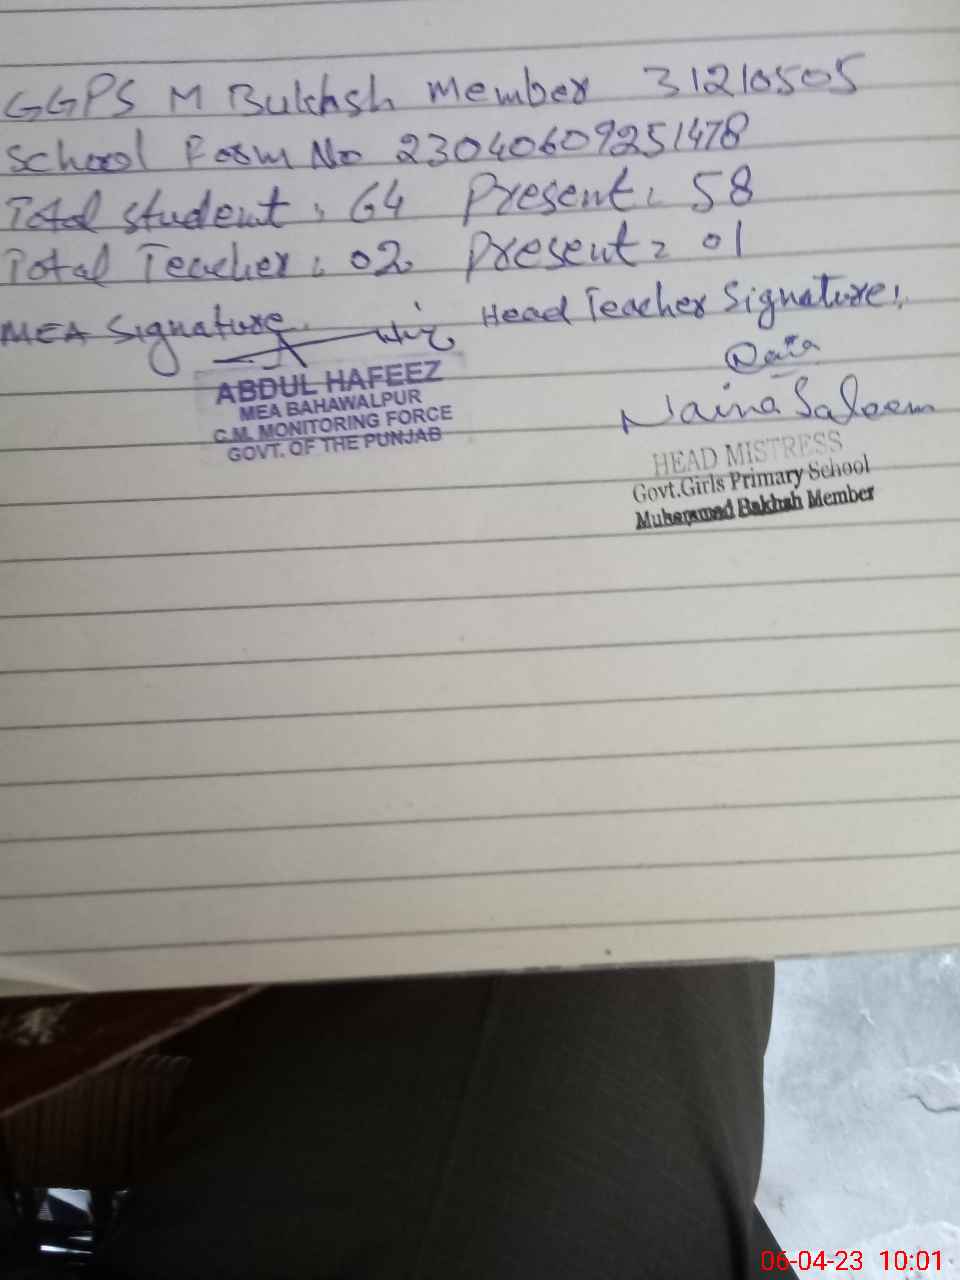 GGPS M Bukhsh Member 31210505
School Form No 23040609251478
Total student : 64 Present : 58
Total Teacher : 02 Present = 01
MEA Signature Head Teacher Signature :
ABDUL HAFEEZ
MEA BAHAWALPUR
C.M. MONITORING FORCE
GOVT. OF THE PUNJAB
Naina Saleem
HEAD MISTRESS
Govt.Girls Primary School
Muhammad Bakhsh Member
06-04-23 10:01